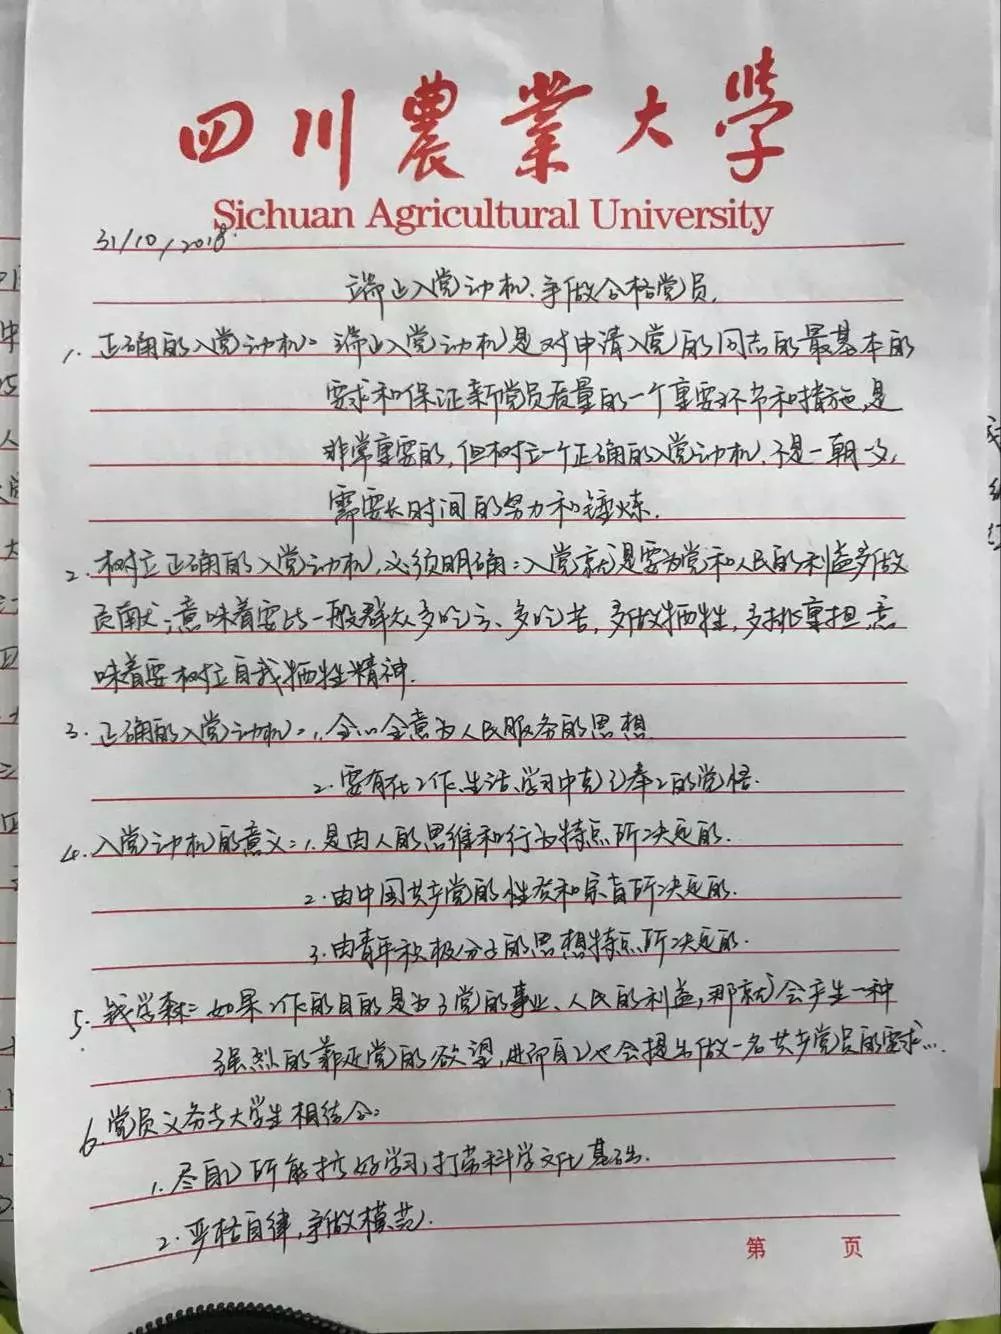 四川農業大学
Sichuan Agricultural University
31/10/2018.
端正入党动机、争做合格党员.
1. 正确的入党动机: 端正入党动机是对申请入党的同志的最基本的
要求和保证新党员质量的一个重要环节和措施,是
非常重要的,但树立一个正确的入党动机,不是一朝一夕,
需要长时间的努力和锤炼.
2. 树立正确的入党动机,必须明确:入党就是要为党和人民的利益多做
贡献;意味着要比一般群众多吃亏、多吃苦,多做牺牲,多挑重担,意
味着要树立自我牺牲精神.
3. 正确的入党动机: 1. 全心全意为人民服务的思想
2. 要有在工作、生活、学习中克己奉公的觉悟.
4. 入党动机的意义: 1. 是由人的思维和行为特点所决定的.
2. 由中国共产党的性质和宗旨所决定的.
3. 由青年积极分子的思想特点所决定的.
5. 钱学森: 如果工作的目的是为了党的事业、人民的利益,那就会产生一种
强烈的靠近党的欲望,进而自己也会提出做一名共产党员的要求...
6. 党员义务与大学生相结合:
1. 尽自己所能搞好学习,打牢科学文化基础.
2. 严格自律,争做模范.
第 页